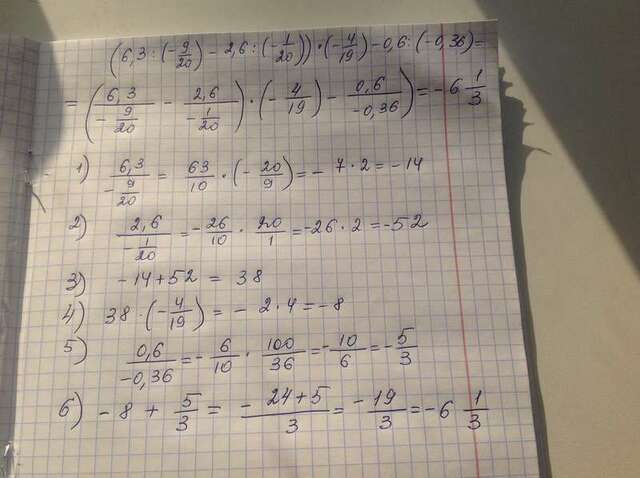 (6,3 : (-9/20) - 2,6 : (-1/20)) · (-4/19) - 0,6 : (-0,36) =
= (6,3/(-9/20) - 2,6/(-1/20)) · (-4/19) - 0,6/-0,36) = -6 1/3
1) 6,3/(-9/20) = 63/10 · (-20/9) = - 7 · 2 = -14
2) 2,6/(-1/20) = -26/10 · 20/1 = -26 · 2 = -52
3) -14 + 52 = 38
4) 38 · (-4/19) = - 2 · 4 = -8
5) 0,6/-0,36 = -6/10 · 100/36 = -10/6 = -5/3
6) -8 + 5/3 = (-24+5)/3 = -19/3 = -6 1/3